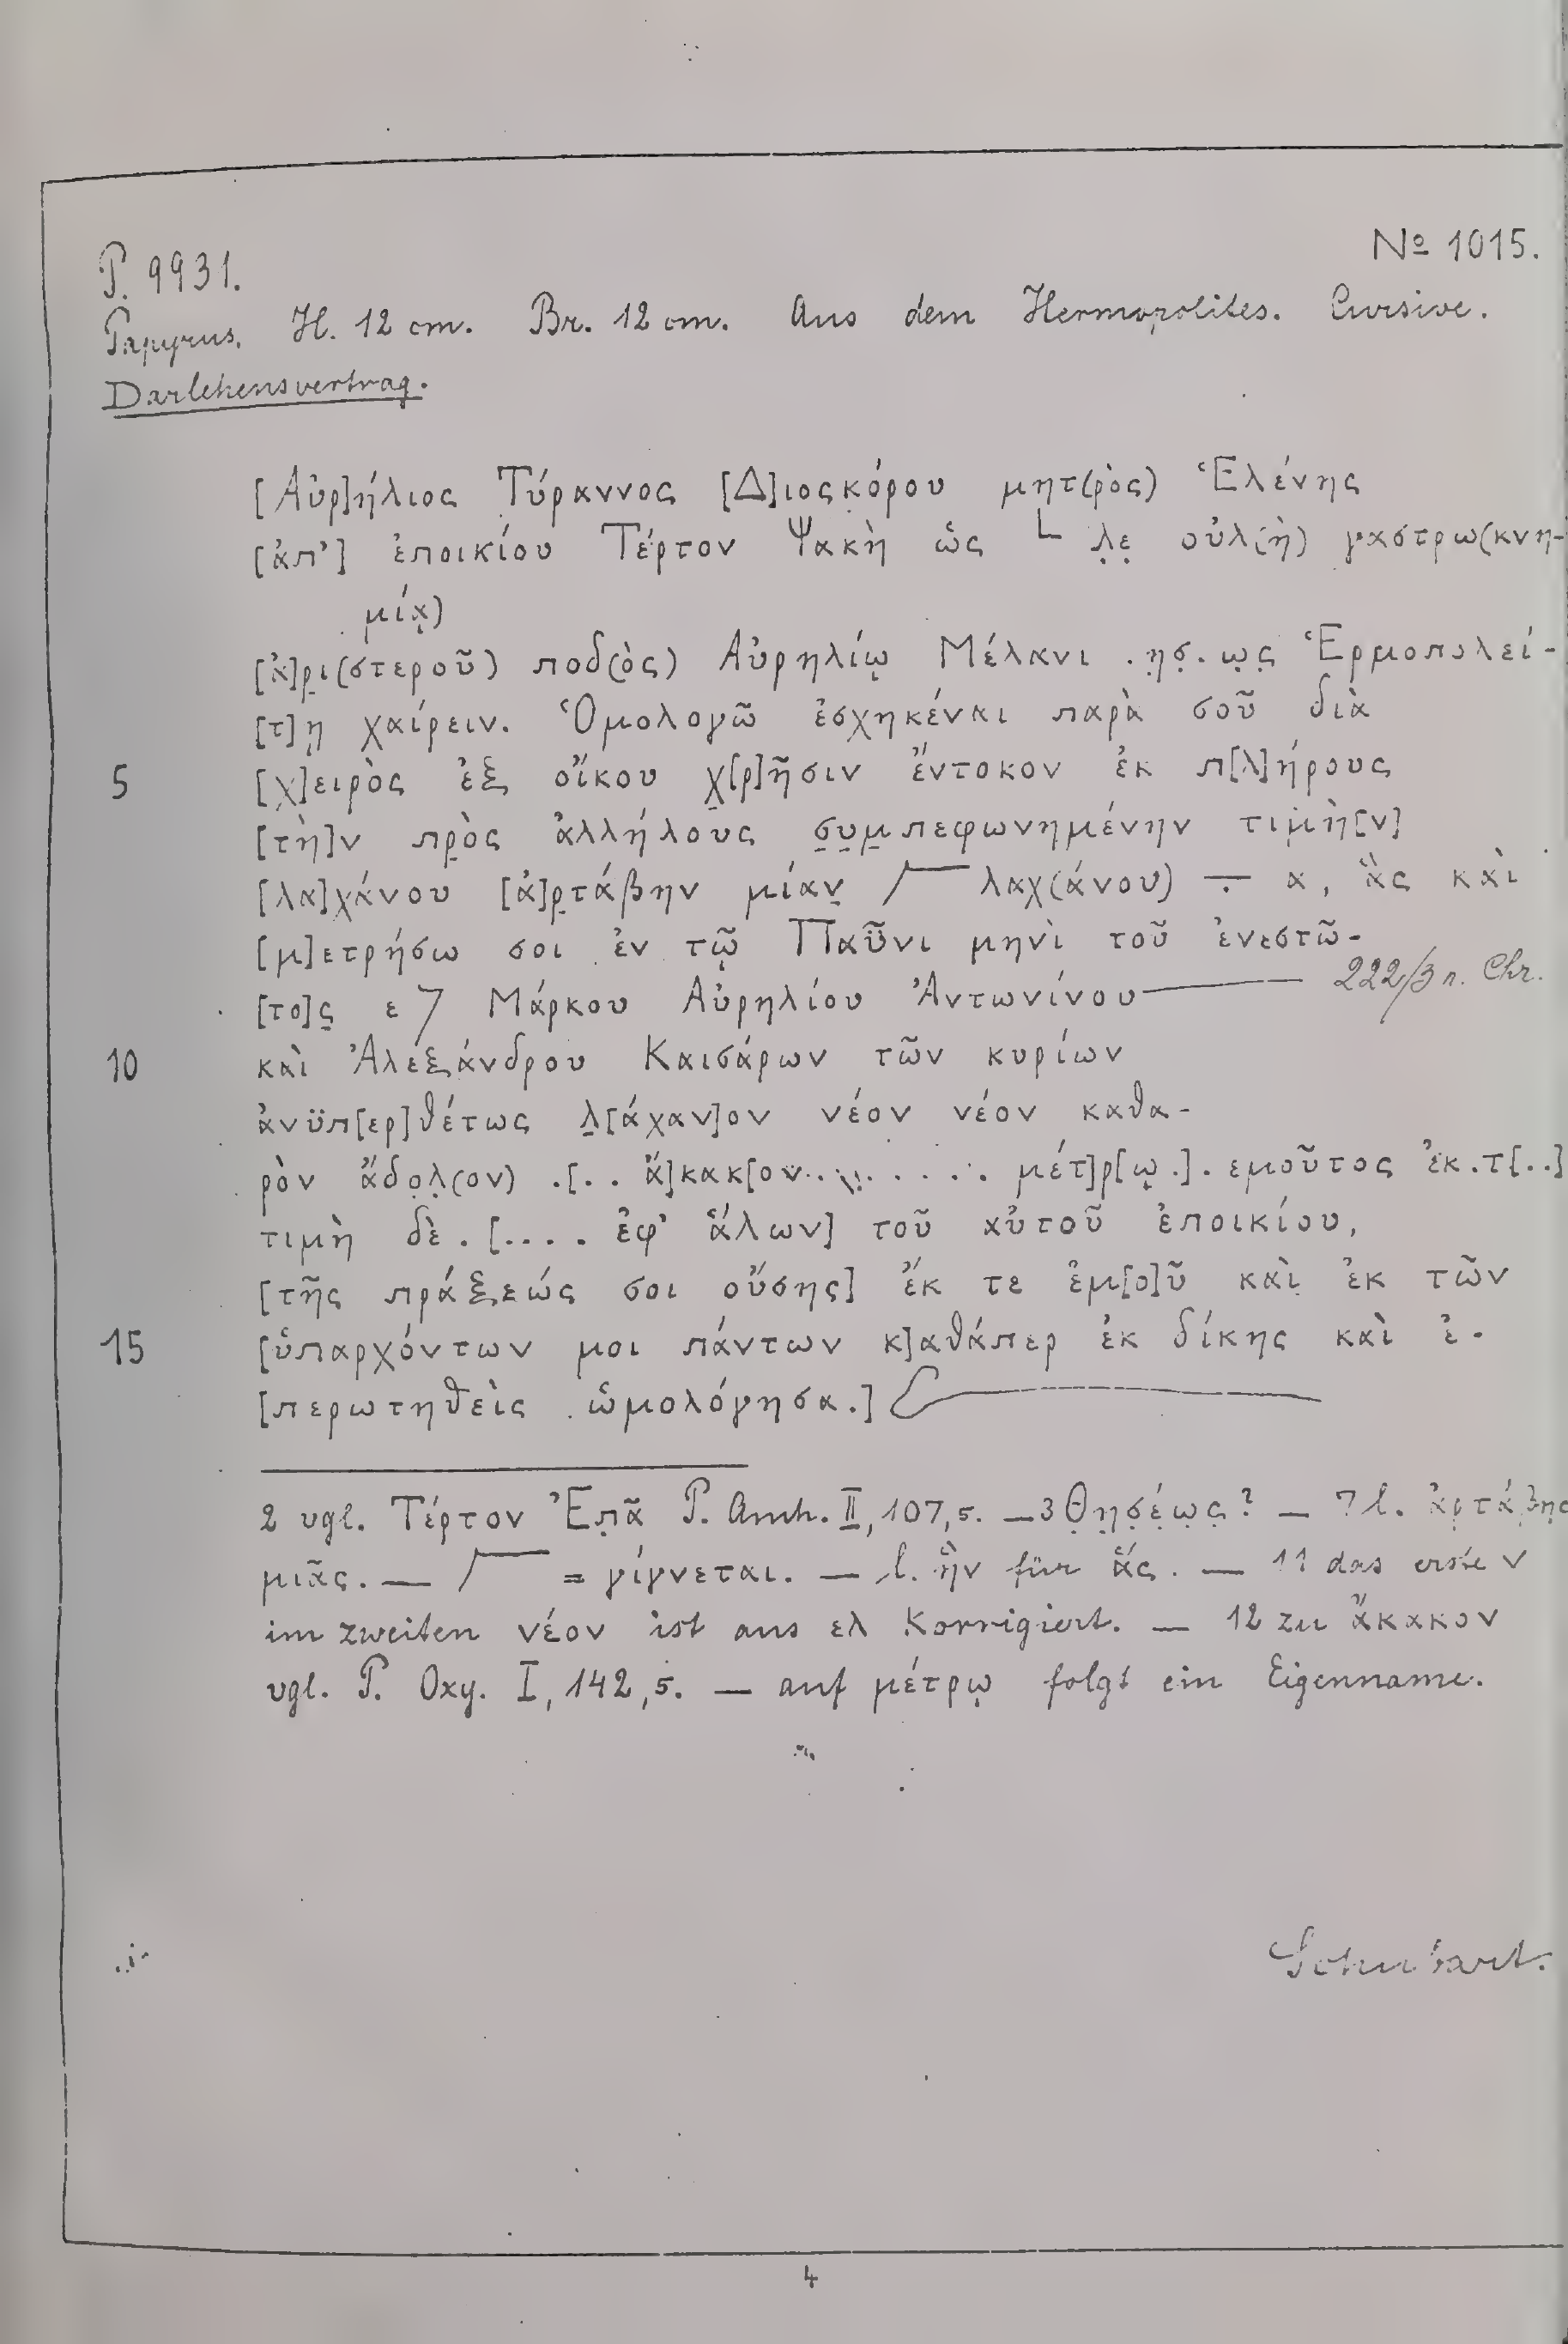 P. 9931.
№ 1015.
Papyrus. H. 12 cm. Br. 12 cm. Aus dem Hermopolites. Cursive.
Darlehensvertrag.
[Αὐρ]ήλιος Τύραννος [Δ]ιοςκόρου μητ(ρὸς) Ἑλένης
[ἀπ’] ἐποικίου Τέρτον Ψακὴ ὡς ∟ λ̣ε̣ οὐλ(ὴ) γαστρω(κνη-
μίᾳ)
[ἀ]ρ̣ι(στεροῦ) ποδ(ὸς) Αὐρηλίῳ Μέλανι .η̣σ̣.ω̣ς̣ Ἑρμοπολεί-
[τ]ῃ χαίρειν. Ὁμολογῶ ἐσχηκέναι παρὰ σοῦ διὰ
5 [χ]ειρὸς ἐξ οἴκου χ̣[ρ]ῆσιν ἔντοκον ἐκ π[λ]ήρους
[τὴ]ν πρ̣ὸς ἀλλήλους σ̣υ̣μ̣πεφωνημένην τιμὴ[ν]
[λα]χάνου [ἀ]ρ̣τάβην μίαν̣ ⟋‾ λαχ(άνου) ∸ α, ἃς καὶ
[μ]ετρήσω σοι ἐν τῷ Παῧνι μηνὶ τοῦ ἐνεστῶ-
[το]ς̣ ε 7 Μάρκου Αὐρηλίου Ἀντωνίνου — 222/3 n. Chr.
10 καὶ Ἀλεξάνδρου Καισάρων τῶν κυρίων
ἀνϋπ[ερ]θέτως λ̣[άχαν]ον νέον νέον καθα-
ρὸν ἄδο̣λ̣(ον) .[.. ἄ]κακ[ον......... μέτ]ρ[ῳ.]. εμοῦτος ἐκ.τ[..]
τιμὴ δὲ .[.... ἐφ’ ἅλων] τοῦ αὐτοῦ ἐποικίου,
[τῆς πράξεώς σοι οὔσης] ἔκ τε ἐμ[ο]ῦ καὶ̣ ἐκ τῶν
15 [ὑπαρχόντων μοι πάντων κ]αθάπερ ἐκ δίκης καὶ ἐ-
[περωτηθεὶς ὡμολόγησα.]
2 vgl. Τέρτον Ἐπ̣ᾶ P. Amh. II, 107,5. — 3 Θ̣η̣σ̣έ̣ω̣ς̣? — 7 l. ἀρτάβης
μιᾶς. — ⟋‾ = γίγνεται. — l. ἣν für ἅς. — 11 das erste ν
im zweiten νέον ist aus ελ korrigiert. — 12 zu ἄκακον
vgl. P. Oxy. I, 142,5. — auf μέτρῳ folgt ein Eigenname.
Schubart.
4